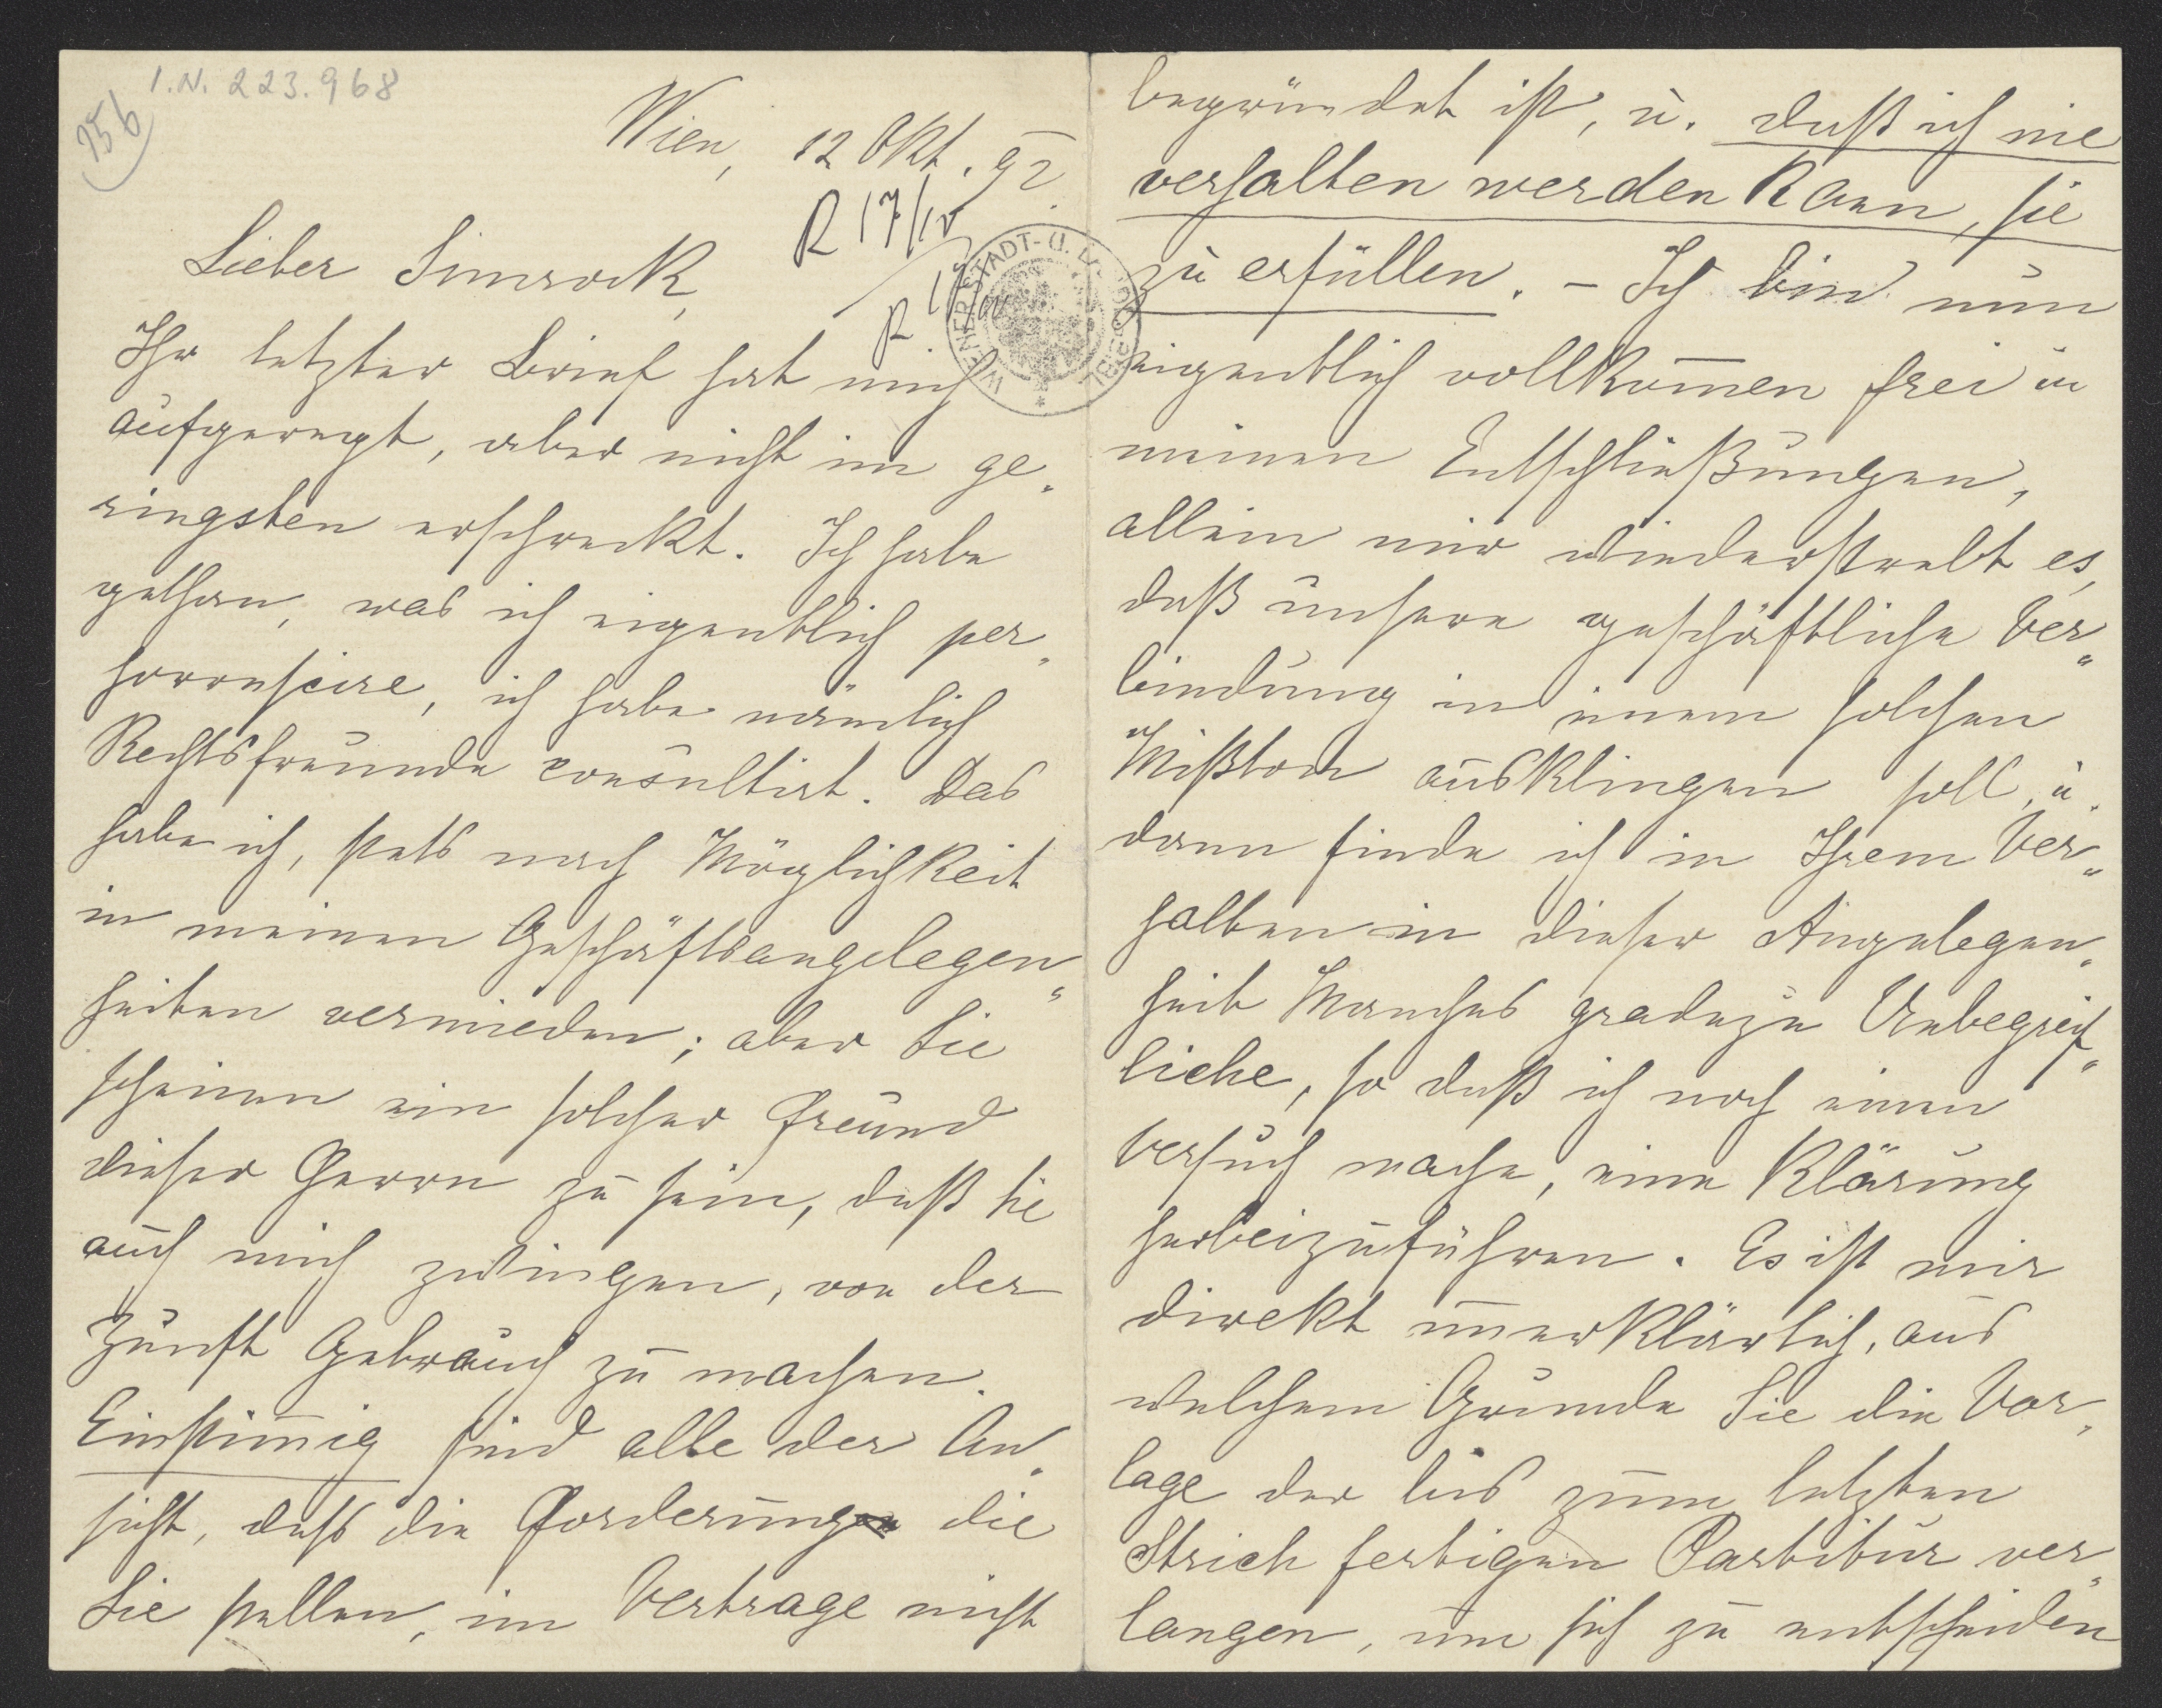 I.N. 223.968
156
Wien, 12 Okt. 92.
R 17/10
R
WIENER STADT- U.
Lieber Simrock,
Ihr letzter Brief hat mich
aufgeregt, aber nicht im ge„
ringsten erschreckt. Ich habe
gethan, was ich eigentlich per„
horrescire, ich habe nämlich
Rechtsfreunde consultirt. Das
habe ich, stets nach Möglichkeit
in meinen Geschäftsangelegen„
heiten vermieden; aber Sie
scheinen ein solcher Freund
dieser Herrn zu sein, daß Sie
auch mich zwingen, von der
Zunft Gebrauch zu machen.
Einstim̅ig sind alle der An„
sicht, daß die Forderung die
Sie stellen, im Vertrage nicht
begründet ist, u. daß ich nie
verhalten werden kann, sie
zu erfüllen. – Ich bin nun
eigentlich vollkom̅en frei in
meinen Entschließungen,
allein mir wiederstrebt es,
daß unsere geschäftliche Ver„
bindung in einem solchen
Mißton ausklingen soll, u.
dann finde ich in Ihrem Ver„
halten in dieser Angelegen„
heit Manches gradezu Unbegreif„
liche, so daß ich noch einen
Versuch mache, eine Klärung
herbeizuführen. Es ist mir
direkt unerklärlich, aus
welchem Grunde Sie die Vor„
lage der bis zum letzten
Strich fertigen Partitur ver„
langen, um sich zu entscheiden